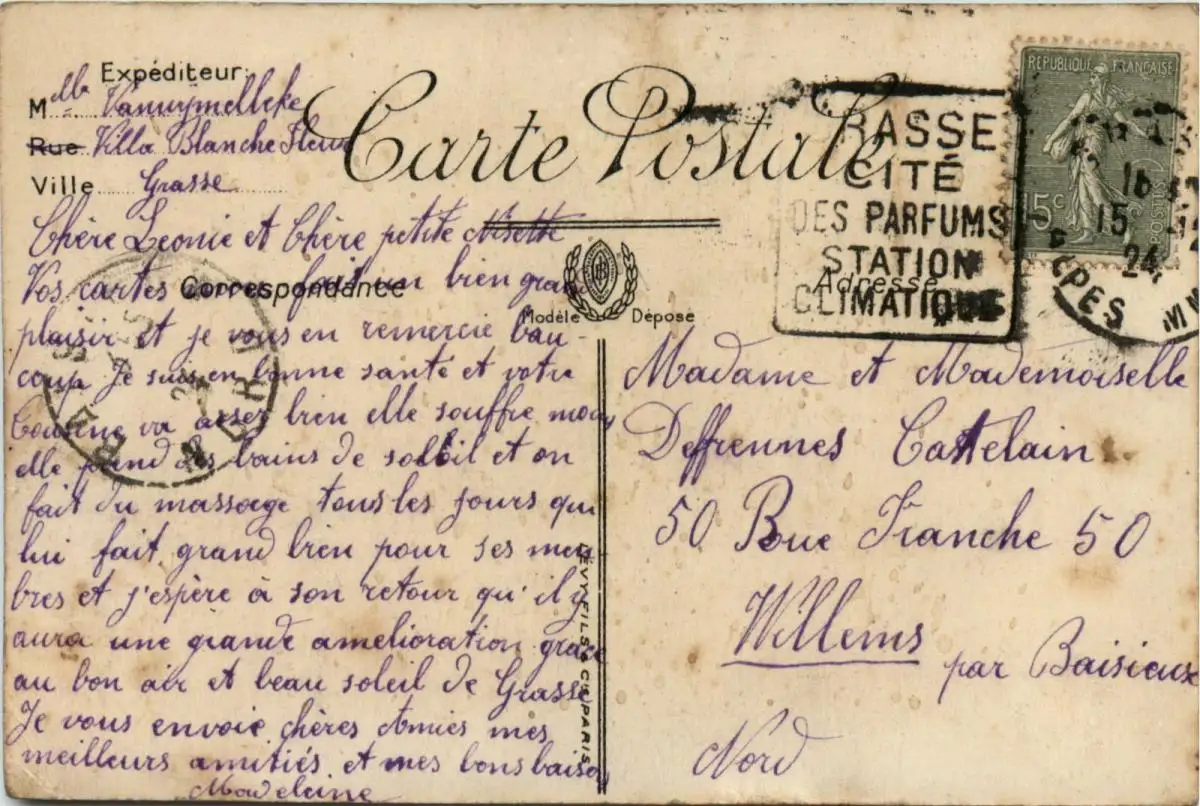 Expéditeur:
Mlle Vanuymelleke
Rue Villa Blanche Fleur
Ville Grasse
Carte Postale
RASSE
CITÉ
DES PARFUMS
STATION
CLIMATIQUE
RÉPUBLIQUE FRANÇAISE
15c
POSTES
15
24
ALPES M
Correspondance
Modèle Déposé
Adresse
Chère Léonie et Chère petite Nisette
Vos cartes font un bien grand
plaisir et je vous en remercie bau-
coup Je suis en bonne santé et votre
va assez bien elle souffre moins
elle prend des bains de soleil et on
fait du massoage tous les jours qui
lui fait grand bien pour ses mem-
bres et j'espère à son retour qu'il y
aura une grande amelioration grace
au bon air et beau soleil de Grasse
Je vous envoie chères Amies mes
meilleurs amitiés et mes bons baisers
Madeleine
LÉVY FILS & CIE PARIS
Madame et Mademoiselle
Deffrennes Castelain
50 Rue Franche 50
Willems
par Baisieux
Nord